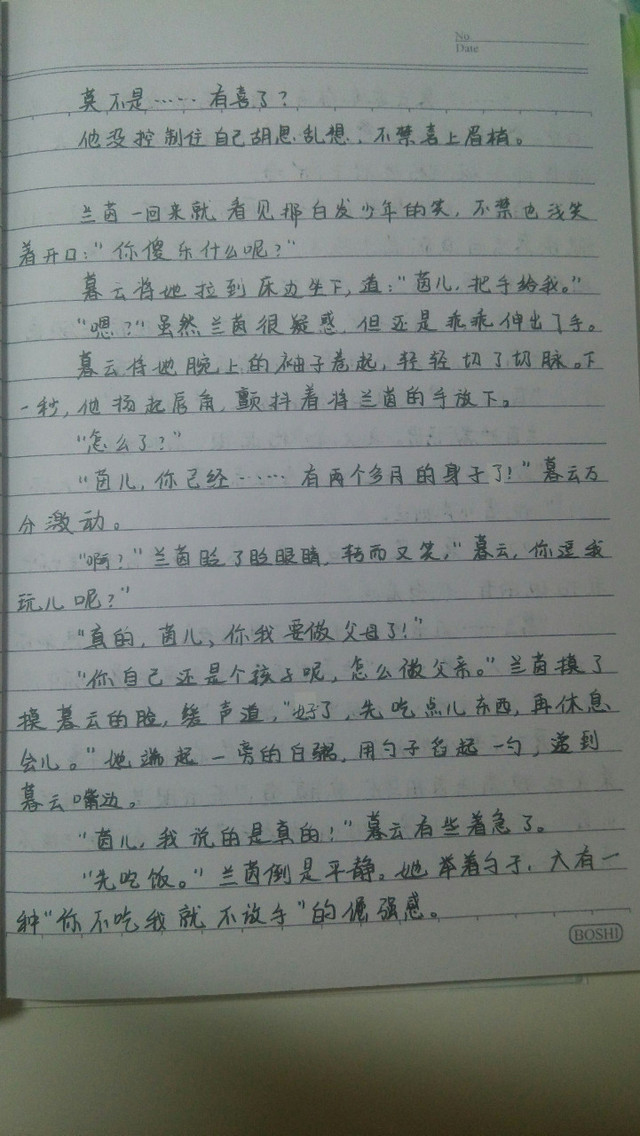 No.
Date
莫不是……有喜了?
他没控制住自己胡思乱想,不禁喜上眉梢。
兰茵一回来就看见那白发少年的笑,不禁也浅笑
着开口:"你傻乐什么呢?"
暮云将她拉到床边坐下,道:"茵儿,把手给我。"
"嗯?"虽然兰茵很疑惑,但还是乖乖伸出了手。
暮云将她腕上的袖子卷起,轻轻切了切脉。下
一秒,他扬起唇角,颤抖着将兰茵的手放下。
"怎么了?"
"茵儿,你已经……有两个多月的身子了!"暮云万
分激动。
"啊?"兰茵眨了眨眼睛,转而又笑,"暮云,你逗我
玩儿呢?"
"真的,茵儿,你我要做父母了!"
"你自己还是个孩子呢,怎么做父亲。"兰茵摸了
摸暮云的脸,缓声道,"好了,先吃点儿东西,再休息
会儿。"她端起一旁的白粥,用勺子舀起一勺,递到
暮云嘴边。
"茵儿,我说的是真的!"暮云有些着急了。
"先吃饭。"兰茵倒是平静。她举着勺子,大有一
种"你不吃我就不放手"的倔强感。
BOSHI